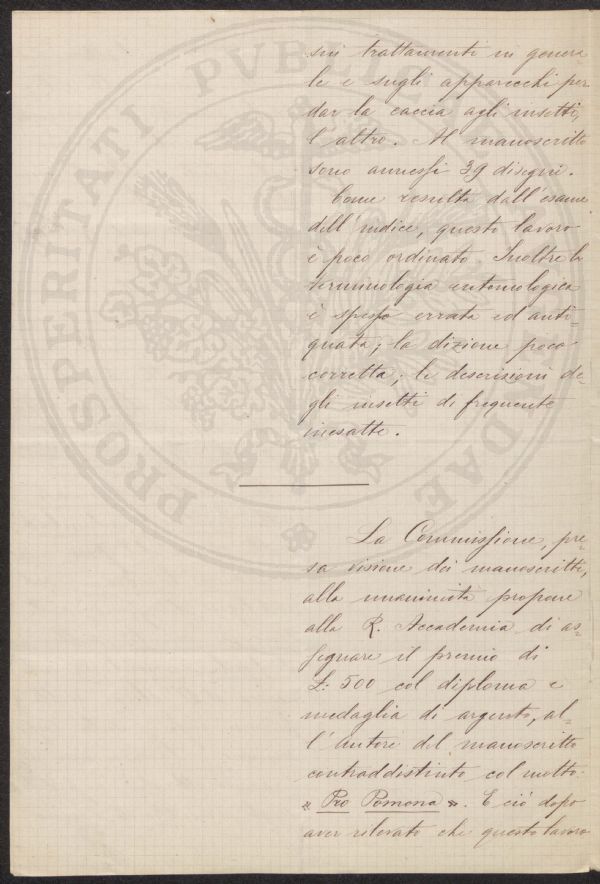 sui trattamenti in genera-
le e sugli apparecchi per
dar la caccia agli insetti,
l'altro. Al manoscritto
sono annessi 39 disegni.
Come resulta dall'esame
dell'indice, questo lavoro
è poco ordinato. Inoltre la
terminologia entomologica
è spesso errata ed anti-
quata; la dizione poco
corretta; le descrizioni de-
gli insetti di frequente
inesatte.
La Commissione, pre-
sa visione dei manoscritti,
alla unanimità propone
alla R. Accademia di as-
segnare il premio di
L: 500 col diploma e
medaglia di argento, al-
l'autore del manoscritto
contraddistinto col motto:
« Pro Pomona ». E ciò dopo
aver rilevato che questo lavoro
PROSPERITATI PVBL
DAE